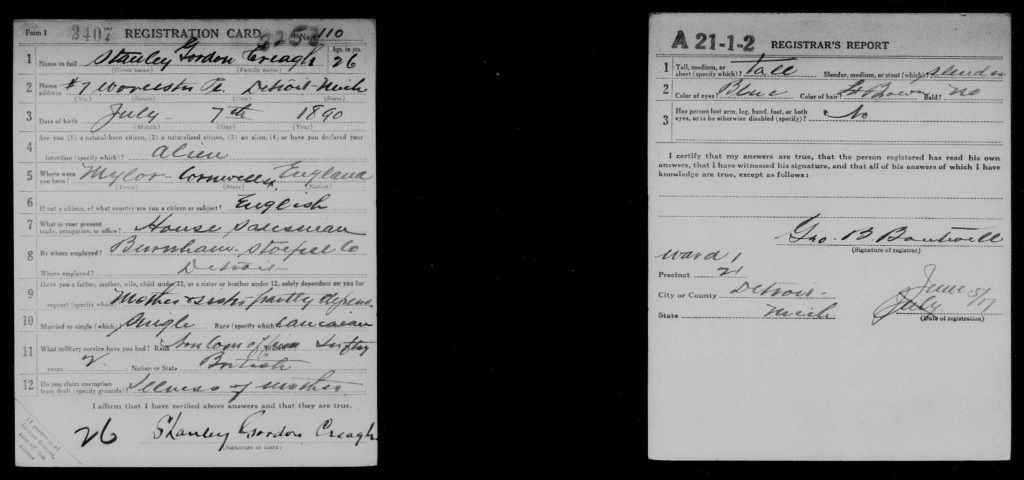 Form 1 2407 REGISTRATION CARD No. 110
1 Name in full Stanley Gordon Creagh Age, in yrs. 26
(Given name) (Family name)
2 Home address #7 Detroit Mich
(No.) (Street) (City) (State)
3 Date of birth July 7th 1890
(Month) (Day) (Year)
4 Are you (1) a natural-born citizen, (2) a naturalized citizen, (3) an alien, (4) or have you declared your
intention (specify which)? alien
5 Where were you born? Mylor Cornwall England
(Town) (State) (Nation)
6 If not a citizen, of what country are you a citizen or subject? English
7 What is your present trade, occupation, or office? House Salesman
8 By whom employed? Burnham Stoepel Co
Where employed? Detroit
9 Have you a father, mother, wife, child under 12, or a sister or brother under 12, solely dependent on you for
support (specify which)? Mother & sister partly
10 Married or single (which)? Single Race (specify which)? Caucasian
11 What military service have you had? Rank
years Nation or State British
12 Do you claim exemption from draft (specify grounds)? Illness of mother
I affirm that I have verified above answers and that they are true.
26 Stanley Gordon Creagh
(Signature or mark)
A 21-1-2 REGISTRAR'S REPORT
1 Tall, medium, or short (specify which)? Tall Slender, medium, or stout (which)? Slender
2 Color of eyes? Blue Color of hair? Lt Brown Bald? No
3 Has person lost arm, leg, hand, foot, or both eyes, or is he otherwise disabled (specify)? No
I certify that my answers are true, that the person registered has read his own
answers, that I have witnessed his signature, and that all of his answers of which I have
knowledge are true, except as follows:
Geo. B Boutwell
(Signature of registrar)
Ward 1
Precinct 21
City or County Detroit
State Mich
June 5/17
July
(Date of registration)